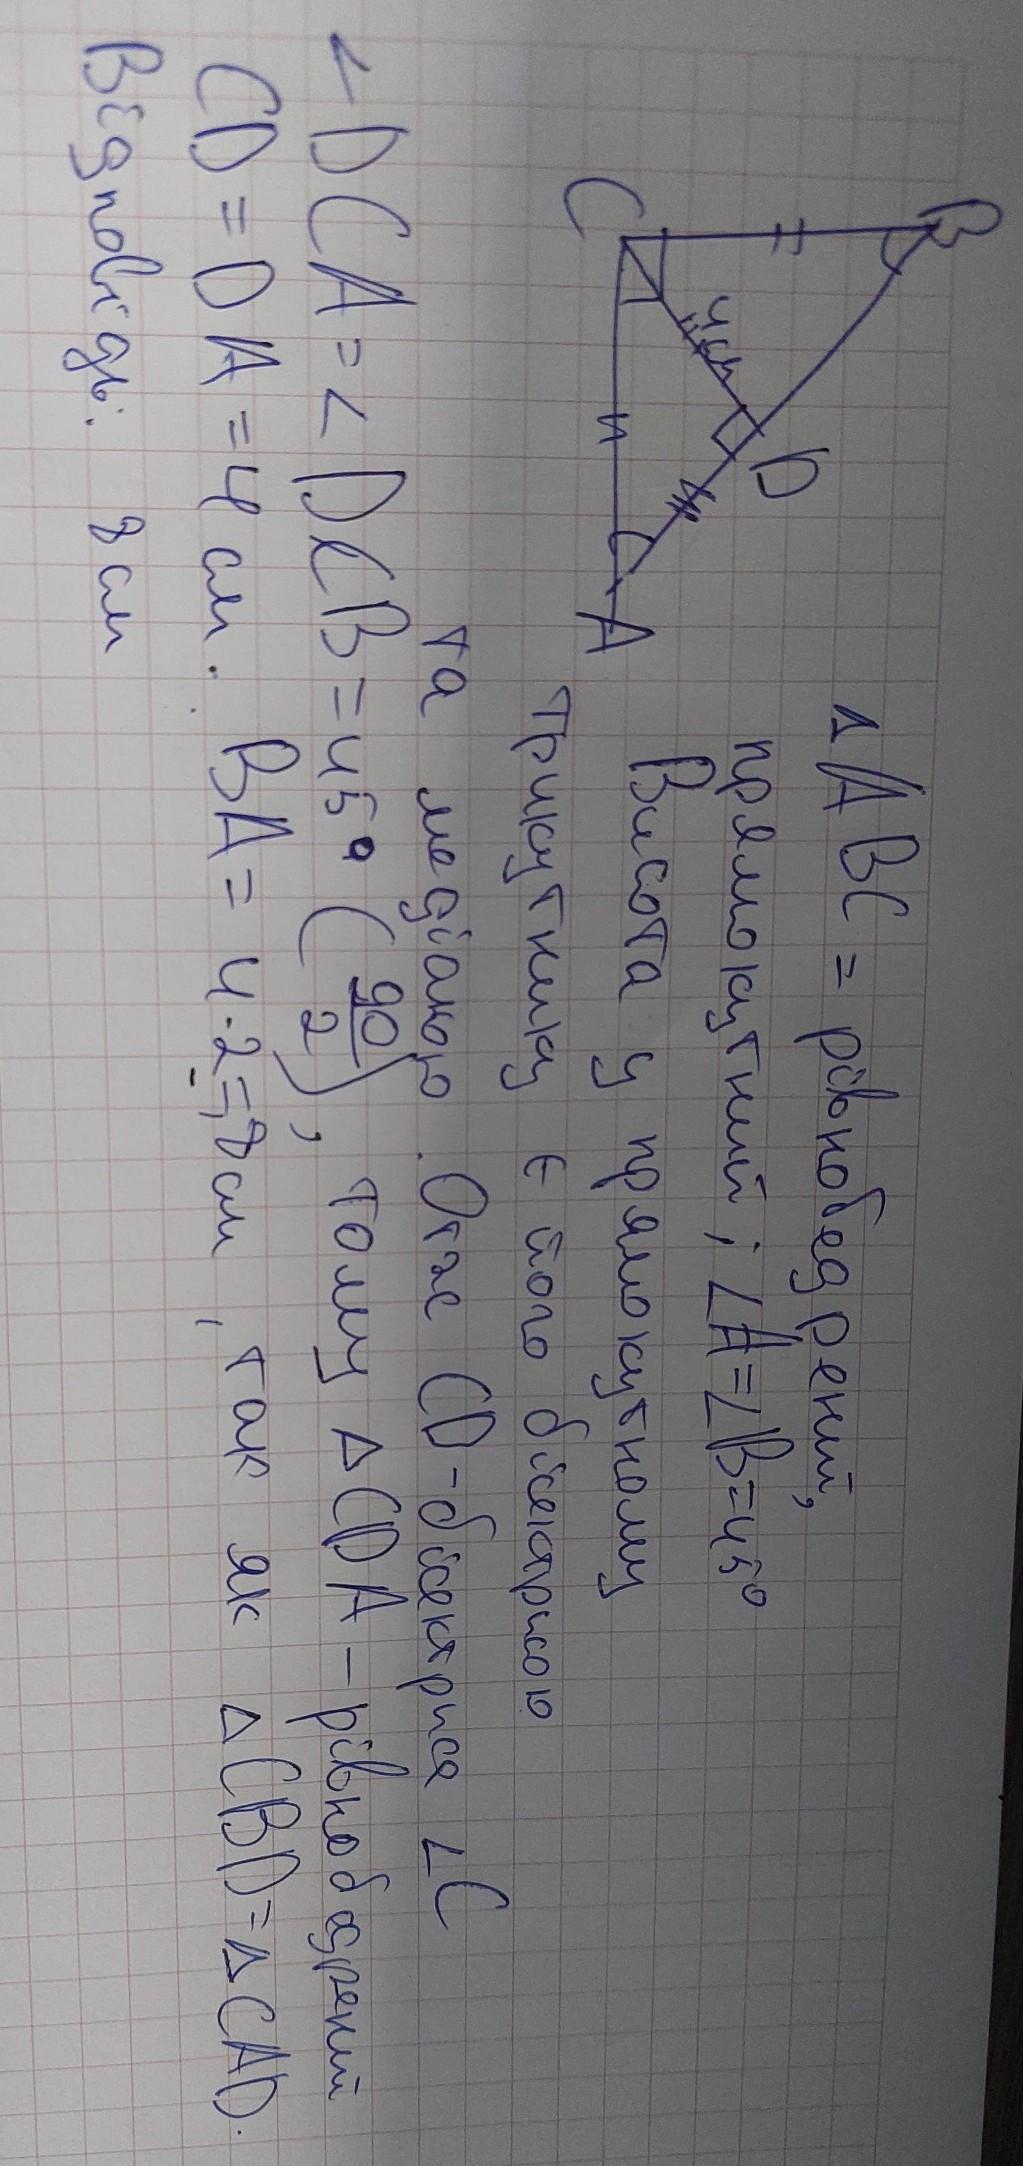 B
D
4 см
C
A
△ABC = рівнобедрений,
прямокутний; ∠A=∠B=45°
Висота у прямокутному
трикутнику є його бісектрисою
та медіаною. Отже CD-бісектриса ∠C
∠DCA=∠DCB=45° (90/2), тому △CDA-рівнобедрений
CD=DA=4 см. BA=4·2=8см, так як △CBD=△CAD.
Відповідь: 8 см